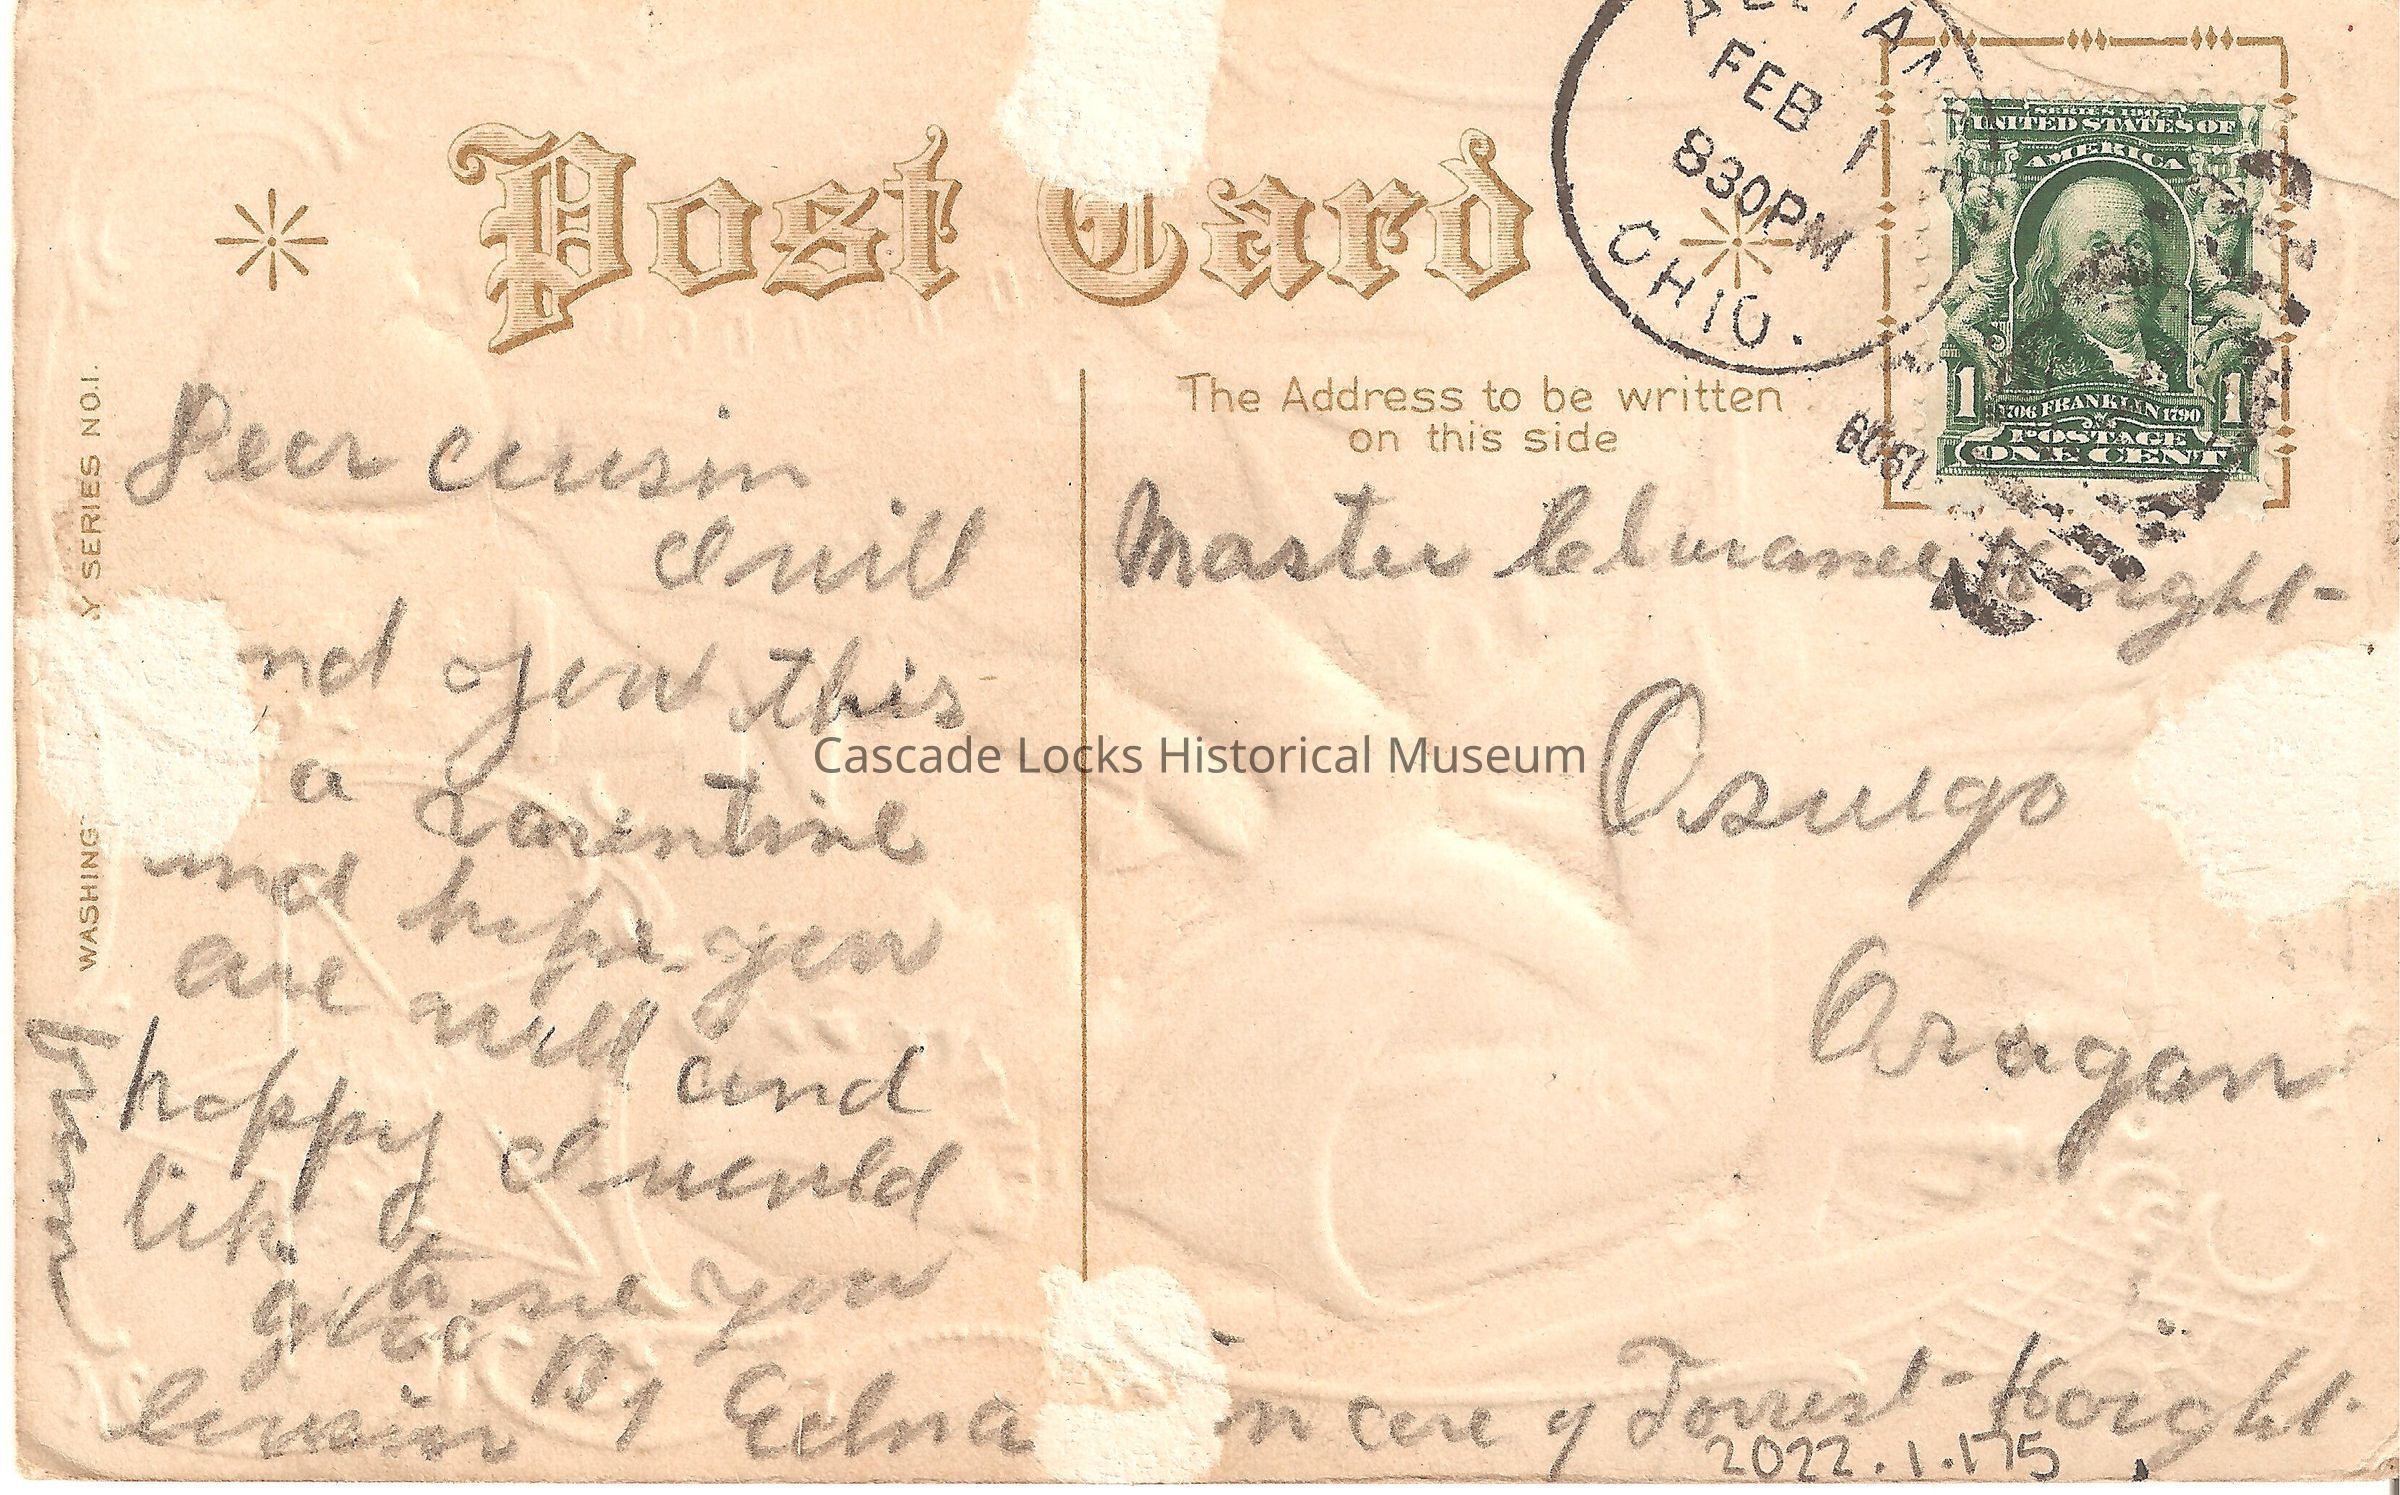 Post Card
FEB 1
830PM
OHIO.
1908
SERIES 1902
UNITED STATES OF
AMERICA
1 1706 FRANKLIN 1790 1
POSTAGE
ONE CENT
The Address to be written
on this side
Y SERIES NO.1.
WASHING
Dear cousin
I will
nd you this
a Varentine
and hope you
are will and
happy I would
like
to see you
good By Edna
cousin
Master Haight
Oswigo
Oragon
in care of Forrest Haight.
2022.1.175
Cascade Locks Historical Museum